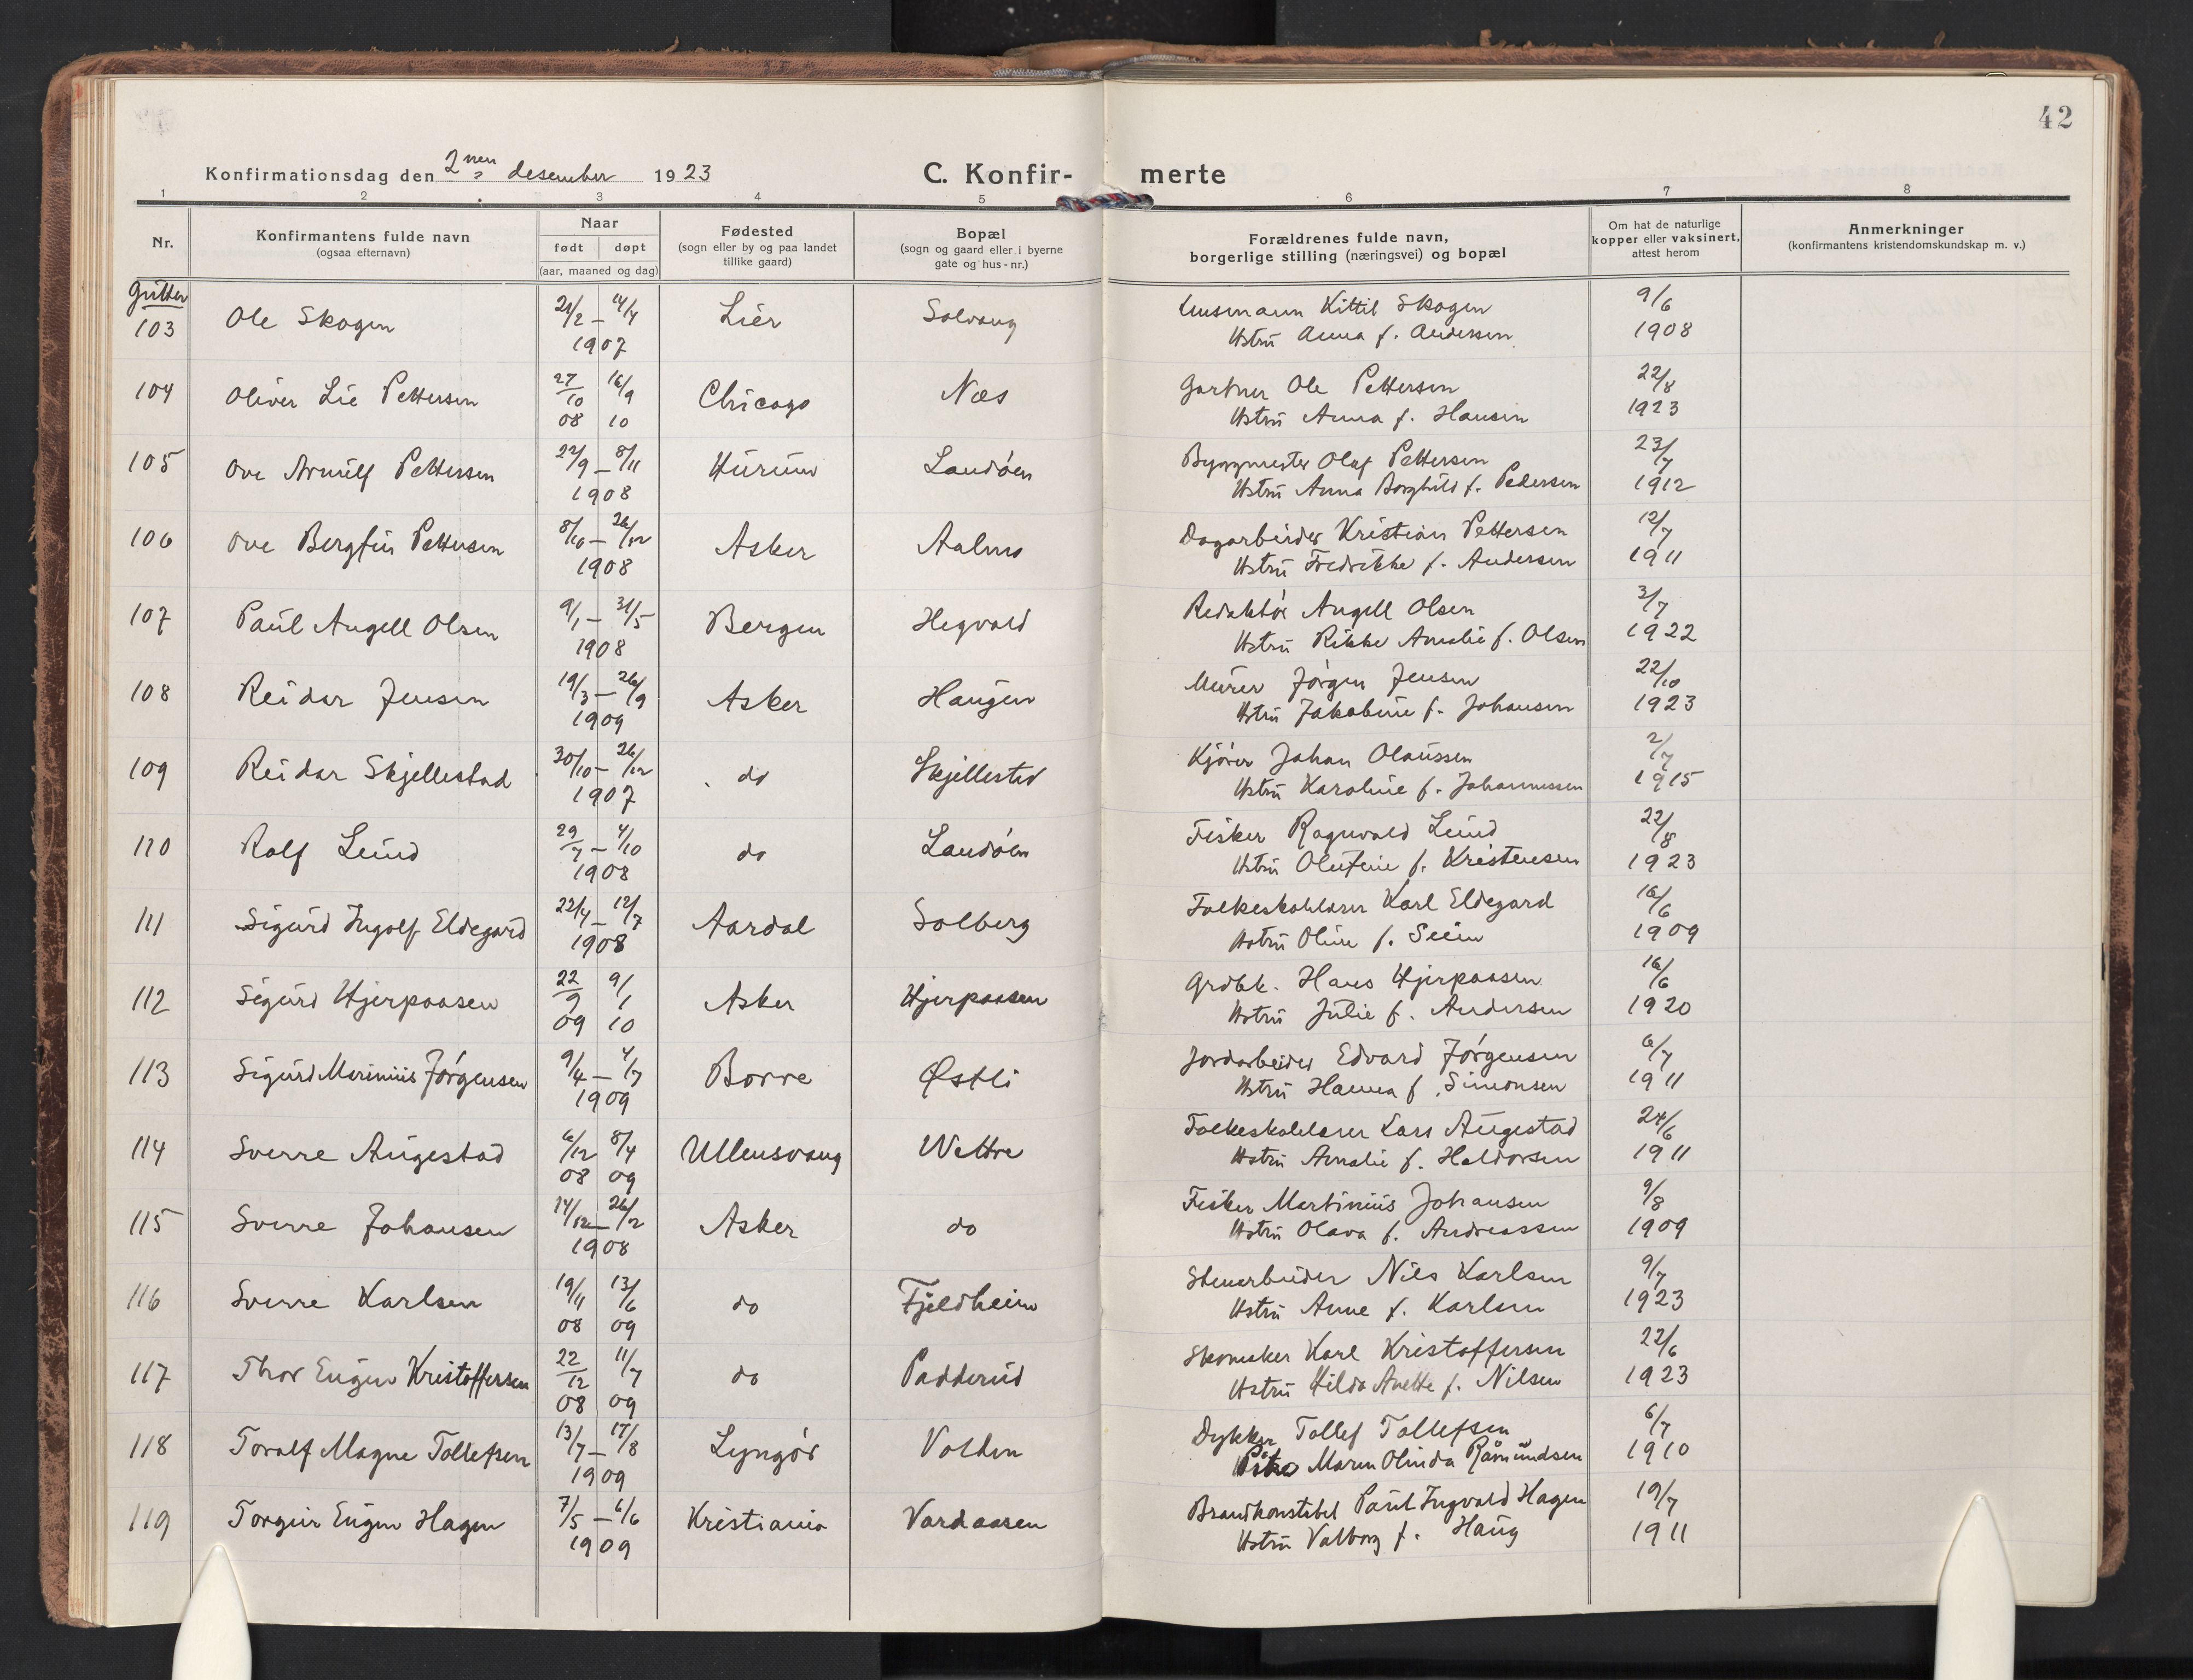 42
Konfirmationsdag den 2nen desember 1923
C. Konfir- merte
1 2 3 4 5 6 7 8
Nr.
Konfirmantens fulde navn
(ogsaa efternavn)
Naar
født døpt
(aar, maaned og dag)
Fødested
(sogn eller by og paa landet
tillike gaard)
Bopæl
(sogn og gaard eller i byerne
gate og hus-nr.)
Forældrenes fulde navn,
borgerlige stilling (næringsvei) og bopæl
Om hat de naturlige
kopper eller vaksinert,
attest herom
Anmerkninger
(konfirmantens kristendomskundskap m. v.)
Gutter
103 Ole Skogen 1907 Lier Solvang Kittil Skogen 9/6
Hstru Anna f. Andersen 1908
104 Oliver Lie Pettersen 27/10 08 16/9 10 Chicago Næs Gartner Ole Pettersen 22/8
Hstru Anna f. Hansen 1923
105 Ove Arnulf Pettersen 22/9 – 8/11 1908 Hurum Landöen Byggmester Olaf Pettersen 23/7
Hstru Anna Borghild f. Pedersen 1912
106 Ove Bergfin Pettersen 8/10 – 26/12 1908 Asker Aalmo Dagarbeider Kristian Pettersen 12/7
Hstru Fredrikke f. Andersen 1911
107 Paul Angell Olsen 9/1 – 31/5 1908 Bergen Hegvold Redaktör Angell Olsen 3/7
Hstru Rikke Amalie f. Olsen 1922
108 Reidar Jensen 19/3 – 26/9 1909 Asker Haugen Murer Jörgen Jensen 22/10
Hstru Jakobine f. Johansen 1923
109 Reidar Skjellestad 30/10 – 26/12 1907 do Skjellestad Kjörer Johan Olaussen 2/7
Hstru Karoline f. Johannessen 1915
110 Rolf Lund 29/7 – 4/10 1908 do Landöen Fisker Ragnvald Lund 22/8
Hstru Olufine f. Kristensen 1923
111 Sigurd Ingolf Eldegard 22/4 – 12/7 1908 Aardal Solberg Folkeskolelærer Karl Eldegard 16/6
Hstru Oline f. Seim 1909
112 Sigurd Hjerpaasen 22/9 09 9/1 10 Asker Hjerpaasen Grdbk. Hans Hjerpaasen 16/6
Hstru Julie f. Andersen 1920
113 Sigurd Marinius Jörgensen 9/4 – 4/7 1909 Borre Østli Jordarbeider Edvard Jörgensen 6/7
Hstru Hanna f. Simonsen 1911
114 Sverre Augestad 6/12 08 8/4 09 Ullensvang Wettre Folkeskolelærer Lars Augestad 24/6
Hstru Amalie f. Haldorsen 1911
115 Sverre Johansen 14/12 – 26/2 1908 Asker do Fisker Martinius Johansen 9/8
Hstru Olava f. Andreassen 1909
116 Sverre Karlsen 19/11 08 13/6 09 do Fjeldheim Stenarbeider Nils Karlsen 9/7
Hstru Anne f. Karlsen 1923
117 Thor Eugen Kristoffersen 22/12 08 11/7 09 do Padderud Skomaker Karl Kristoffersen 22/6
Hstru Hilda Anette f. Nilsen 1923
118 Toralf Magne Tollefsen 13/7 – 17/8 1909 Lyngör Volden Dykker Tollef Tollefsen 6/7
Maren Olinda Råmundsen 1910
119 Torgeir Eugen Hagen 7/5 – 6/6 1909 Kristiania Vardaasen Brandkonstabel Paul Ingvald Hagen 19/7
Hstru Valborg f. Haug 1911